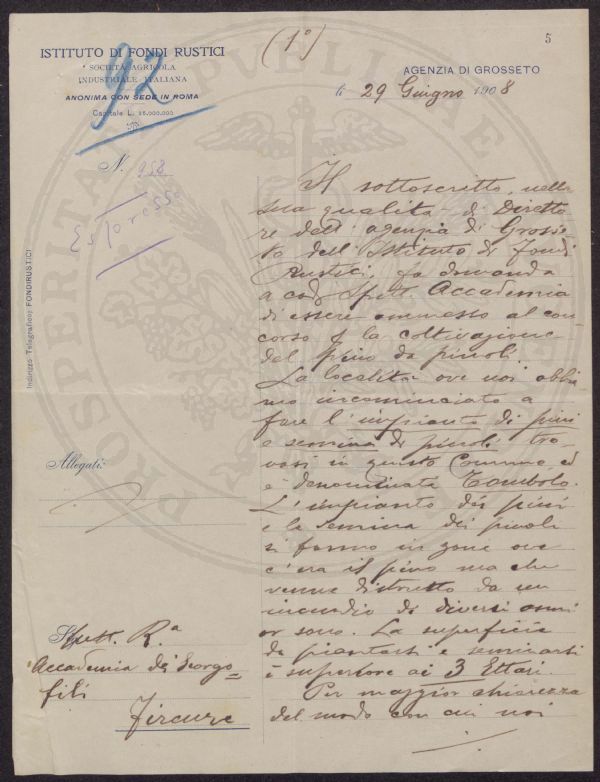 (1°)
5
ISTITUTO DI FONDI RUSTICI
SOCIETÀ AGRICOLA
INDUSTRIALE ITALIANA
ANONIMA CON SEDE IN ROMA
Capitale L. 25.000.000
92
AGENZIA DI GROSSETO
li 29 Giugno 1908
N. 958
Espresso
Indirizzo Telegrafico: FONDIRUSTICI
PROSPERITATI PUBLICAE
Il sottoscritto, nella
sua qualità di Diretto
re dell'agenzia di Grosse
to dell'Istituto di Fondi
Rustici, fa domanda
a cod Spett. Accademia
di essere ammesso al con
corso p la coltivazione
del pino da pinoli.
La località ove noi abbia
mo incominciato a
fare l'impianto di pini
e semina di pinoli tro
vasi in questo Comune ed
è denominata Tombolo.
L'impianto dei pini
e la semina dei pinoli
si fanno in zone ove
c'era il pino ma che
venne distrutto da un
incendio di diversi anni
or sono. La superficie
da piantarsi e seminarsi
è superiore ai 3 Ettari.
Per maggior chiarezza
del modo con cui noi
Allegati:
Spett. R.a
Accademia dei Georgo=
fili
Firenze